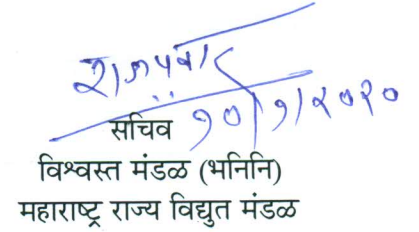 सचिव १०/१/२०२०
विश्वस्त मंडळ (भनिनि)
महाराष्ट्र राज्य विद्युत मंडळ